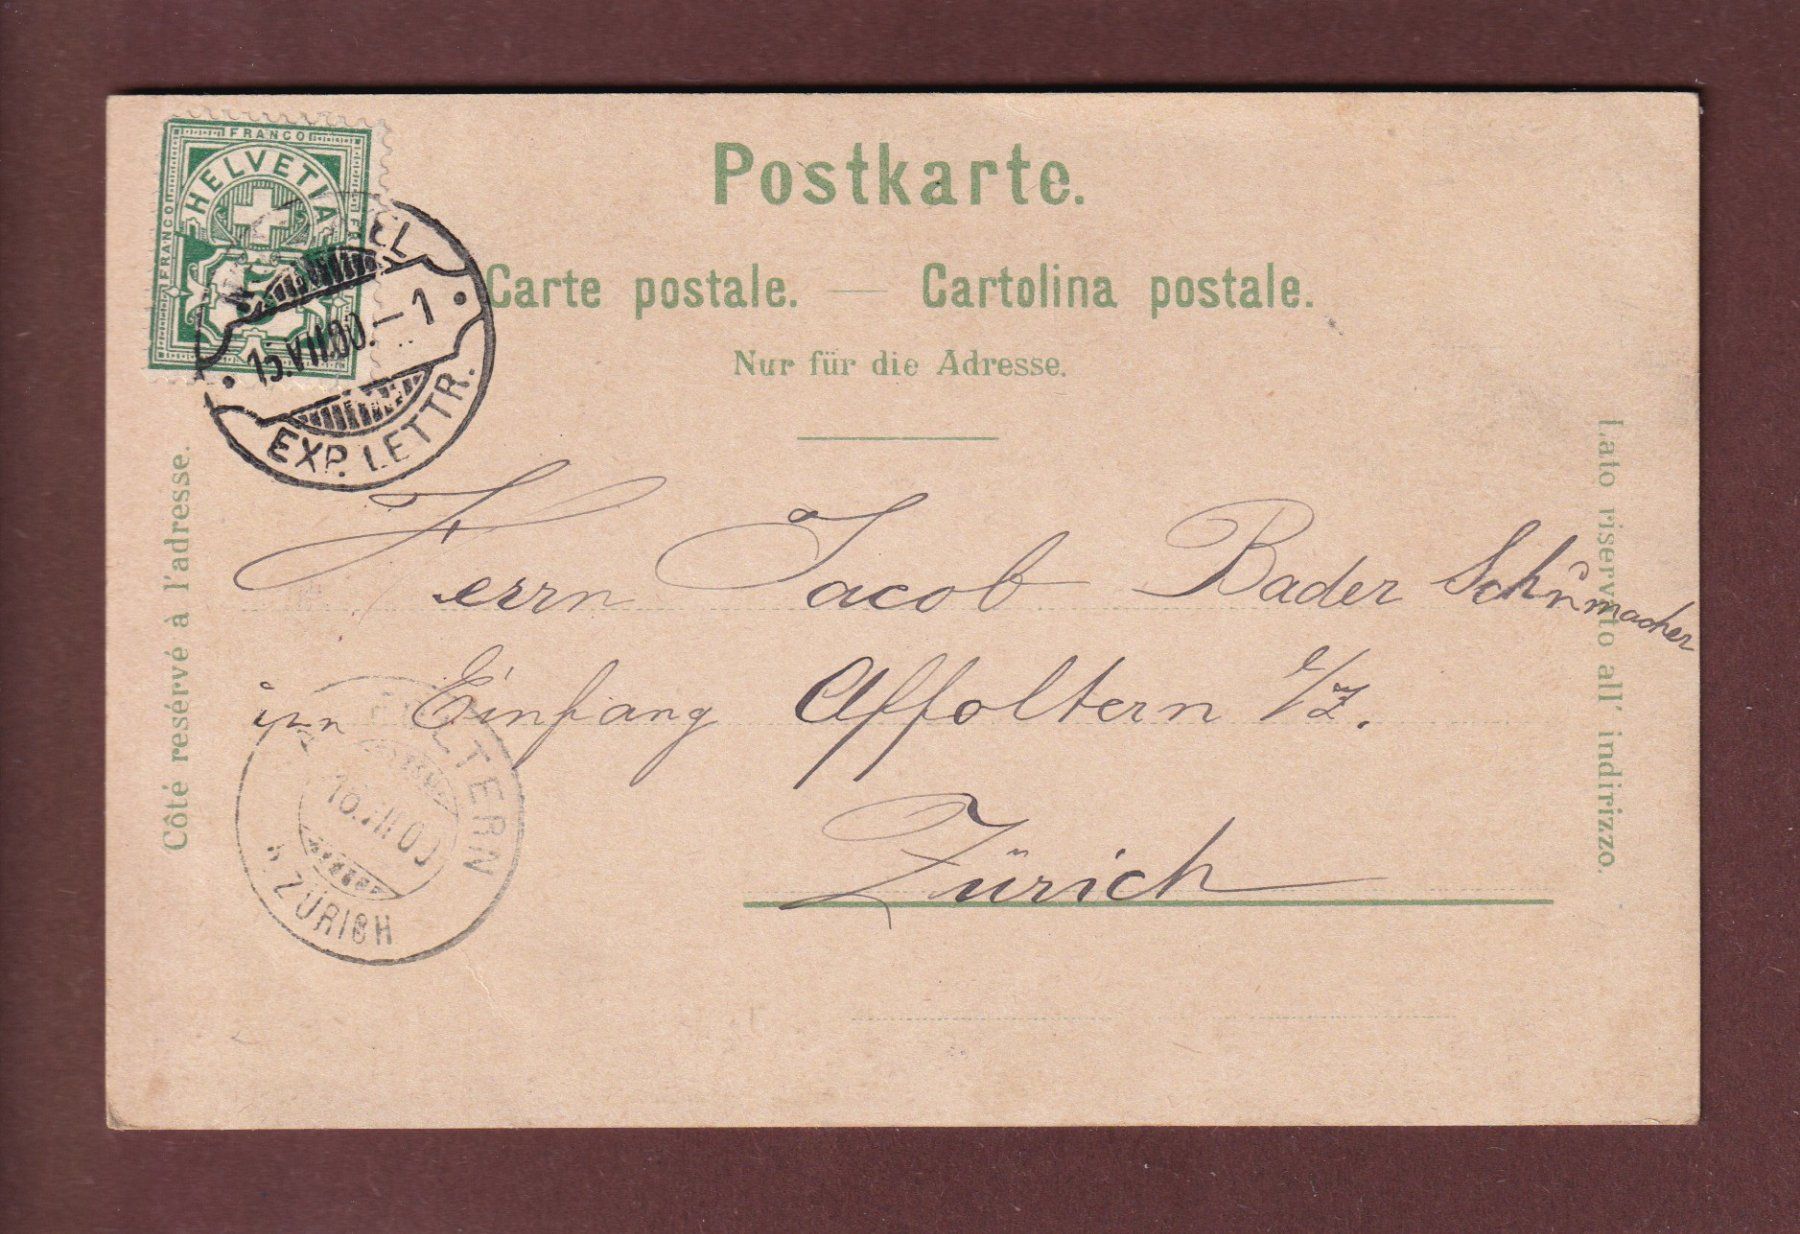 FRANCO
FRANCO
HELVETIA
15.VII.00.–1
EXP. LETTR.
Postkarte.
Carte postale. — Cartolina postale.
Nur für die Adresse.
Côté resérvé à l'adresse.
Lato riservato all' indirizzo.
Herrn Jacob Bader Schumacher
im Einfang Affoltern b/Z.
Zürich
ZÜRICH